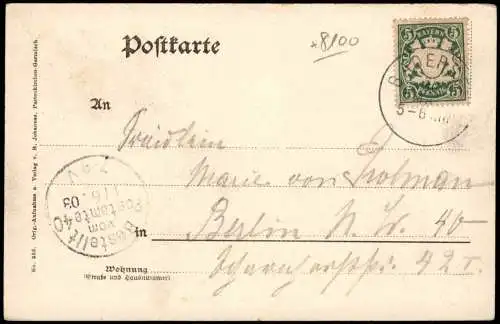 Postkarte
*8100
BAYERN
5 5
5 5
PFENNIG
5-6
An
Fräulein
Marie von
Berlin N. W. 40
in
42 I.
Bestellt
vom
Postamte 40
1/6.03
7-8 V
Wohnung
(Straße und Hausnummer)
Nr. 258. Orig.-Aufnahme u. Verlag v. B. Johannes, Partenkirchen-Garmisch.